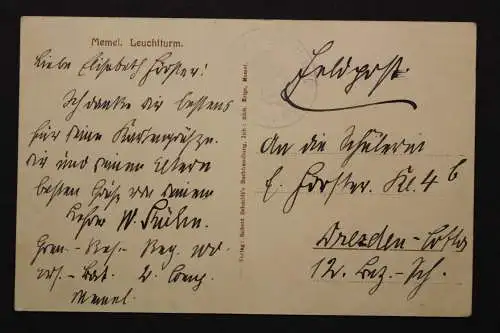 Memel. Leuchtturm.
Liebe Elisabeth Förster!
Ich danke dir bestens
für deine Kartengrüße.
Dir und deinen Eltern
besten Gruß von deinem
Lehrer W. Kühn.
Gren.-Res.-Reg.
Ers.-Bat. 2. Comp.
Memel.
Verlag: Robert Schmidt's Buchhandlung, Inh.: Rich. Krips, Memel.
Feldpost.
An die Schülerin
E. Förster. Kl. 4 b
Dresden-
12. Bez.-Sch.